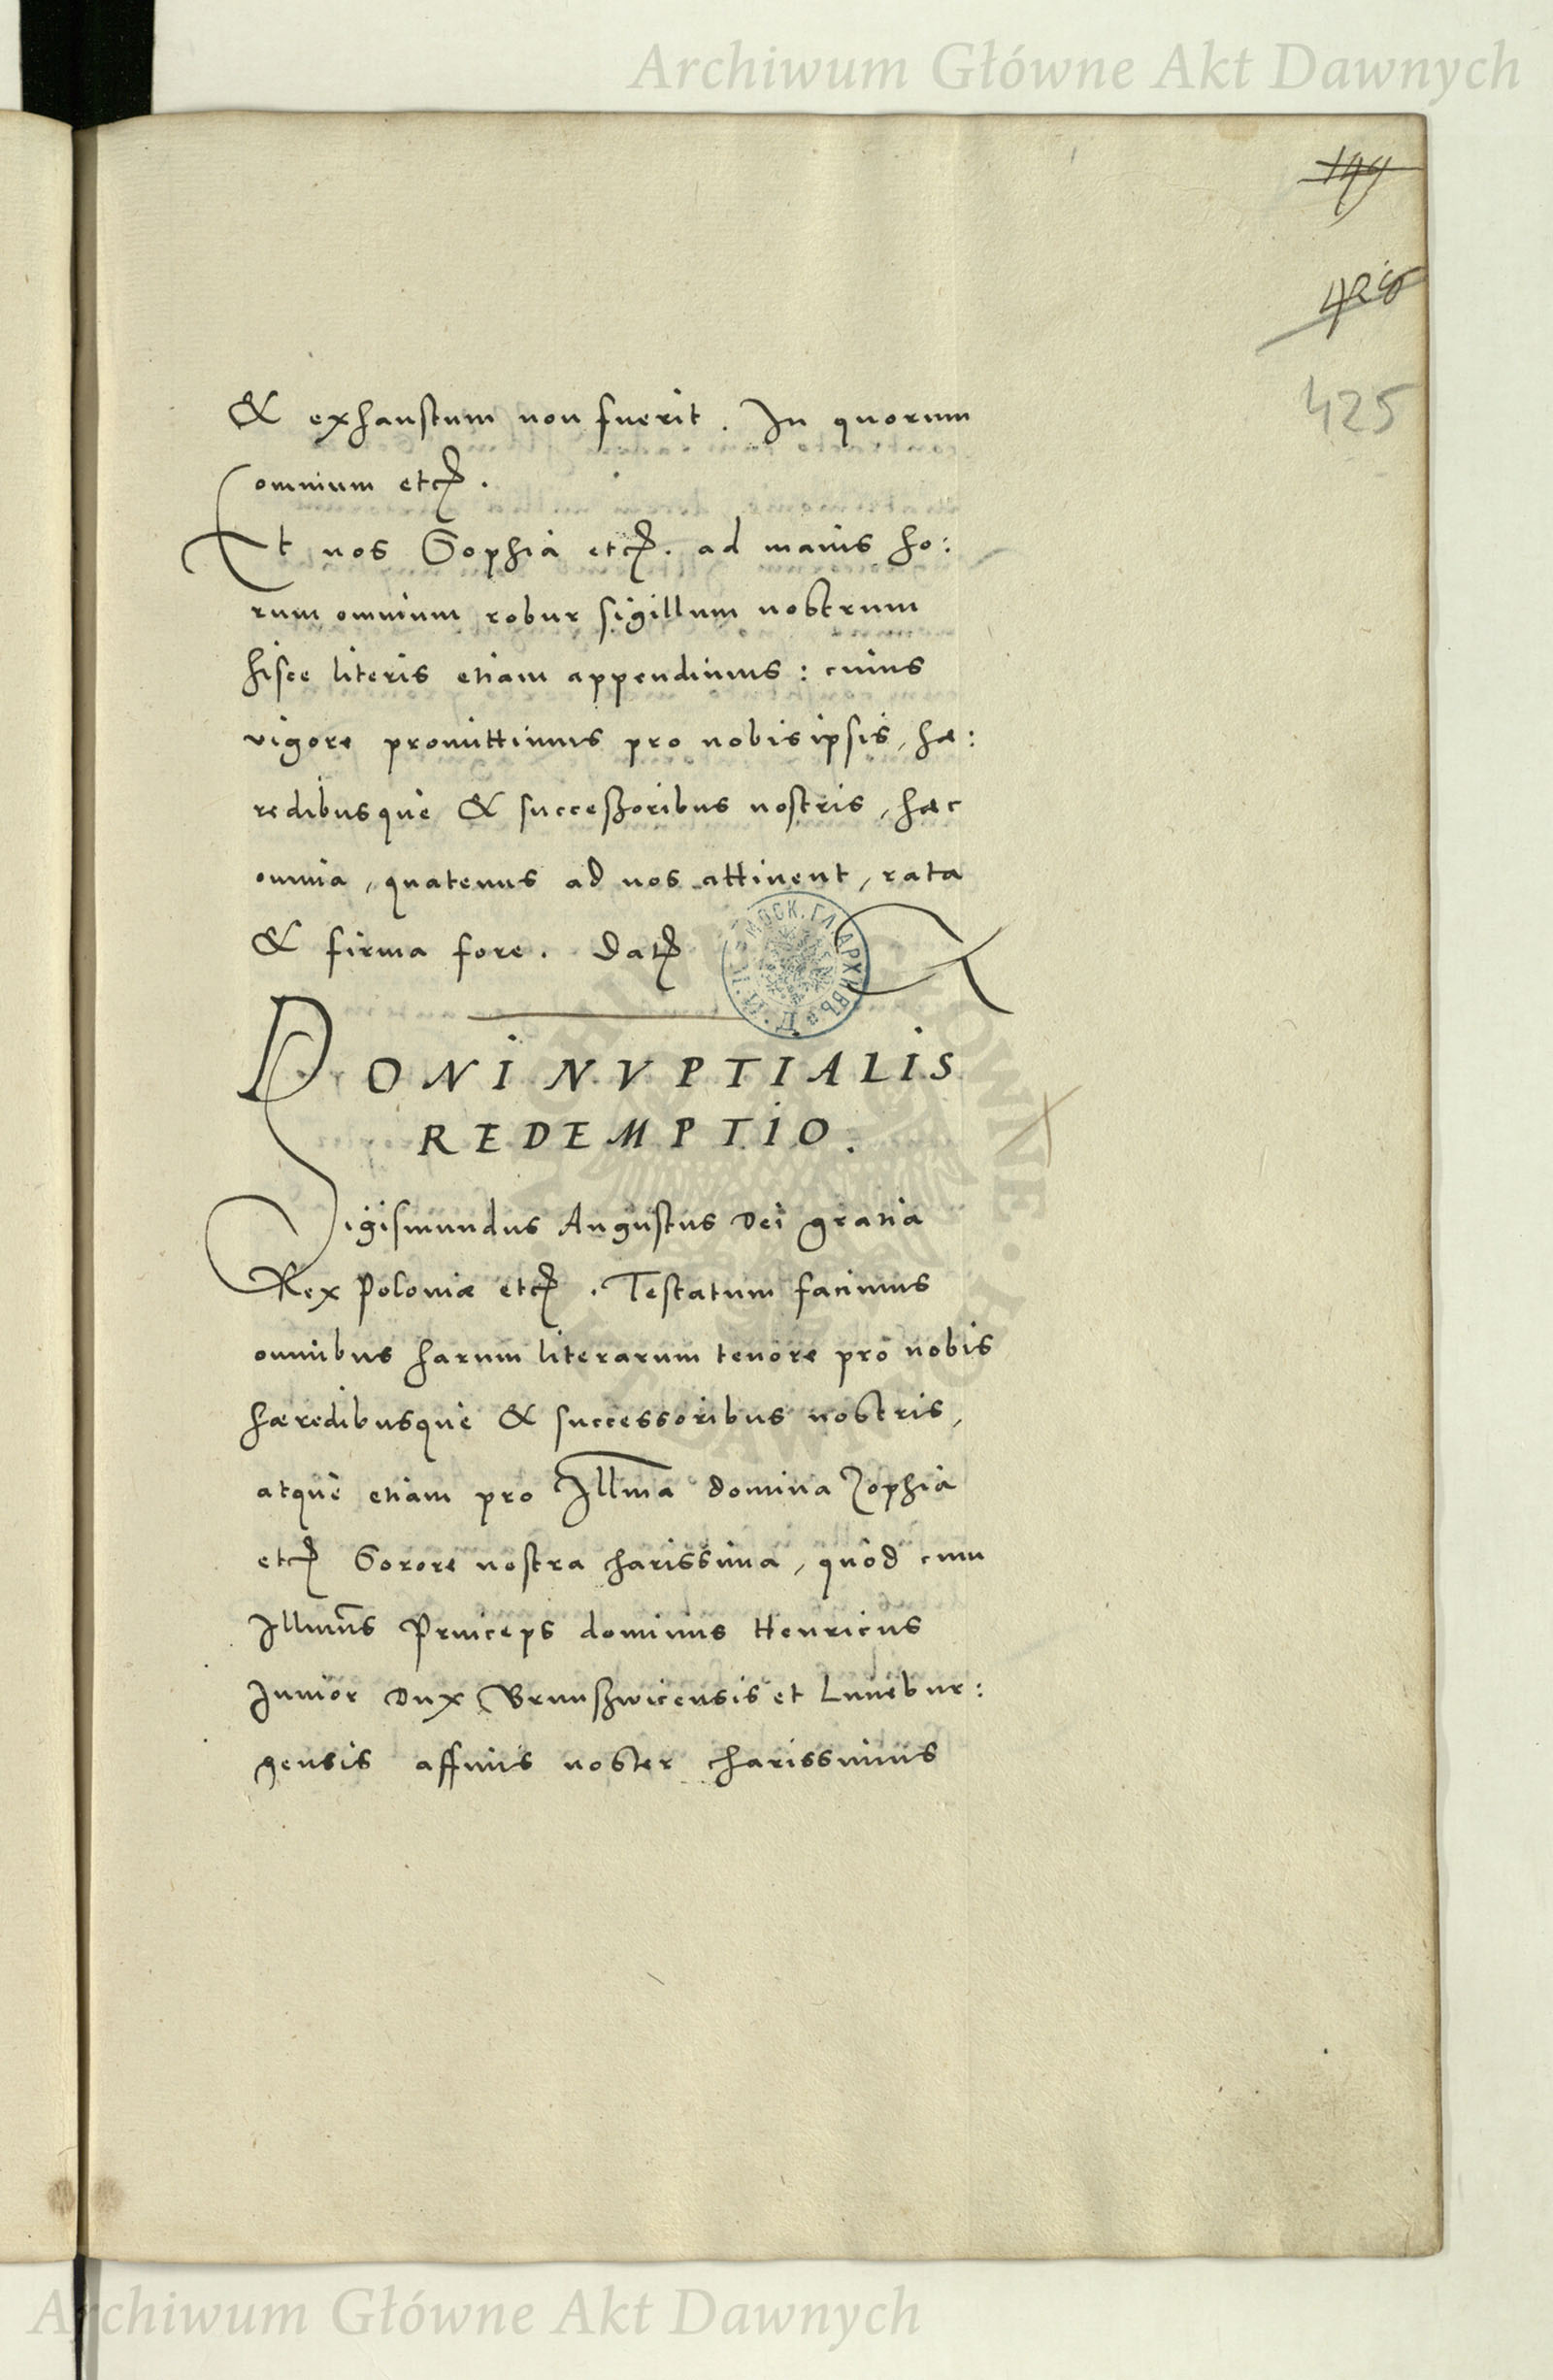 Archiwum Główne Akt Dawnych
149
425
& exhaustum non fuerit. In quorum
omnium etc.
Et nos Sophia etc. ad maius ho:
rum omnium robur sigillum nostrum
hisce literis etiam appendimus: cuius
vigore promittimus pro nobis ipsis, hæ:
redibusque & succeßoribus nostris, hæc
omnia, quatenus ad nos attinent, rata
& firma fore. Dat
DONI NVPTIALIS
REDEMPTIO.
Sigismundus Augustus Dei gratia
Rex Poloniæ etc. Testatum facimus
omnibus harum literarum tenore pro nobis
hæredibusque & successoribus nostris,
atque etiam pro Illma domina Zophia
etc Sorore nostra charissima, quòd cum
Illmus Princeps dominus Henricus
Iunior Dux Brunßwicensis et Lunebur:
gensis affinis noster charissimus
Archiwum Główne Akt Dawnych